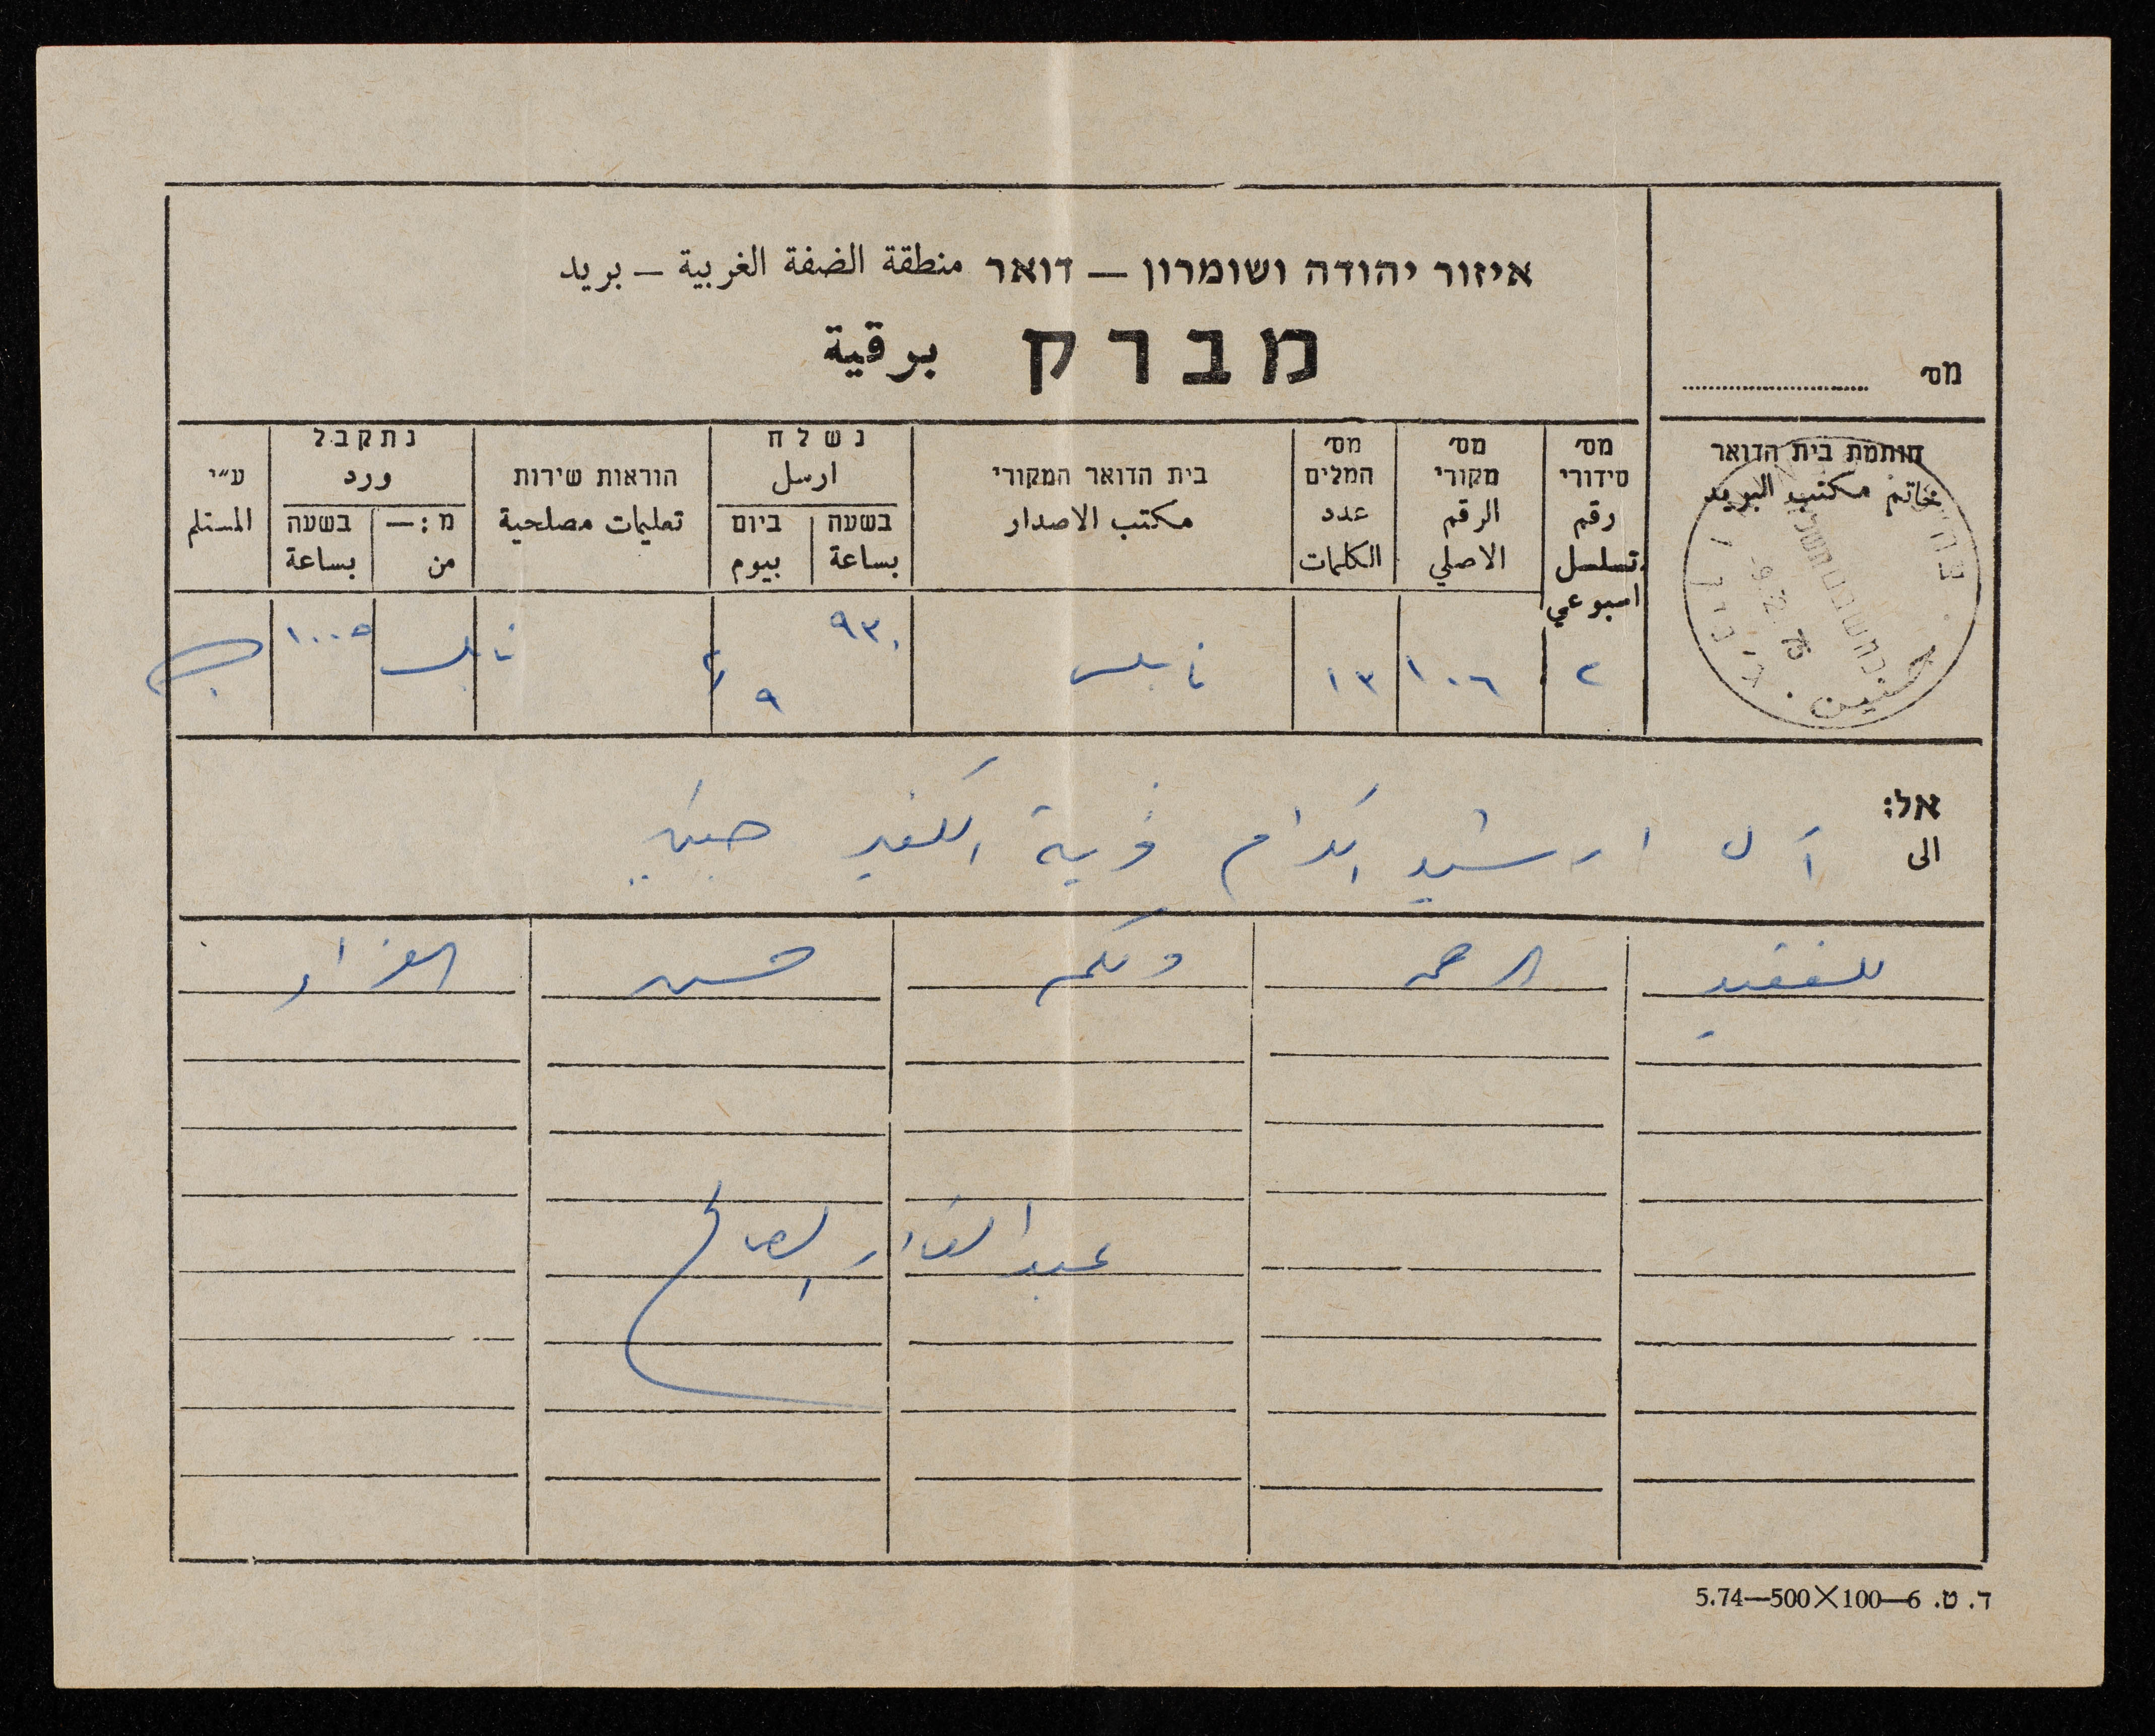 איזור יהודה ושומרון — דואר منطقة الضفة الغربية — بريد
מברק برقية
מס'
חותמת בית הדואר
خاتم مكتب البريد
מס' סידורי رقم تسلسل اسبوعي
מס' מקורי الرقم الاصلي
מס' המלים عدد الكلمات
בית הדואר המקורי مكتب الاصدار
נשלח ارسل
בשעה بساعة
ביום بيوم
הוראות שירות تعليمات مصلحية
נתקבל ورد
מ:— من
בשעה بساعة
ע״י المستلم
٢ ١٠٦ ١٣ نابلس ٩٣٠ ٩/٢ نابلس ١٠٠٥
جنين
-9.2.75
אל:
الى
آل ارشيد الكرام قرية الكفير جنين
للفقيد الرحمه ولكم حسن العزاء
عبد القادر الصالح
ד. ט. 6—100×500—5.74